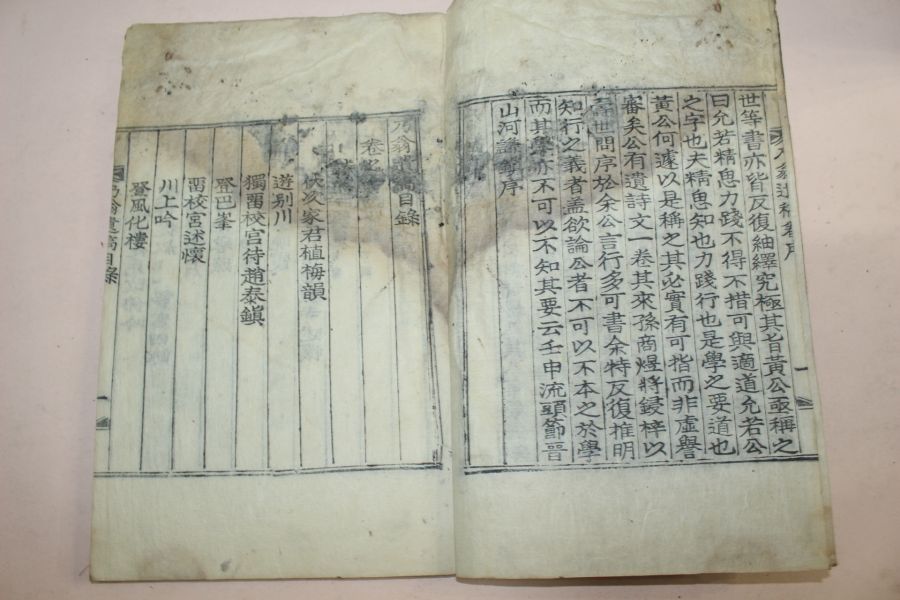 世等書亦皆反復紬繹究極其旨黃公亟稱之
曰允若精思力踐不得不措可與適道允若公
之字也夫精思知也力踐行也是學之要道也
黃公何遽以是稱之其必實有可指而非虛譽
審矣公有遺詩文一卷其來孫商煜將鋟梓以
世問序於余公言行多可書余特反復推明
知行之義者盖欲論公者不可以不本之於學
而其學亦不可以不知其要云壬申流頭節晉
山河謙鎭序
乃翁遺稿目錄
卷之
伏次家君植梅韻
遊别川
獨留校宮待趙泰鎭
登巴峯
留校宮述懷
川上吟
登風化樓
乃翁遺稿目錄
一